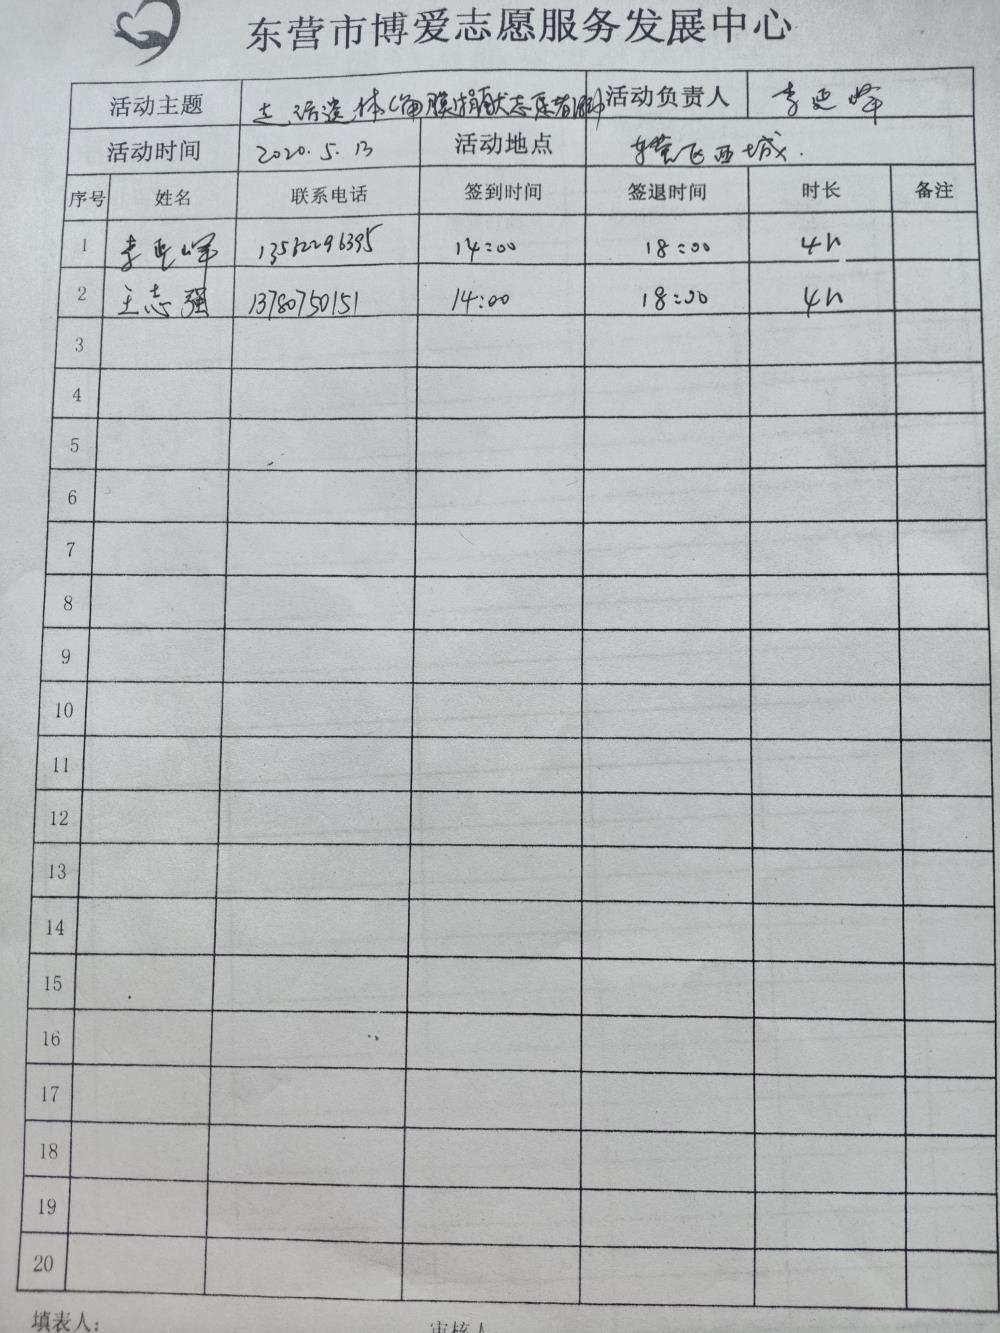 东营市博爱志愿服务发展中心
活动主题 走访遗体(角膜)捐献志愿者 活动负责人 李延峰
活动时间 2020.5.13 活动地点 东营区西城.
序号 姓名 联系电话 签到时间 签退时间 时长 备注
1 李延峰 13562296395 14:00 18:00 4h
2 王志强 13780750151 14:00 18:00 4h
3
4
5
6
7
8
9
10
11
12
13
14
15
16
17
18
19
20
填表人: 审核人